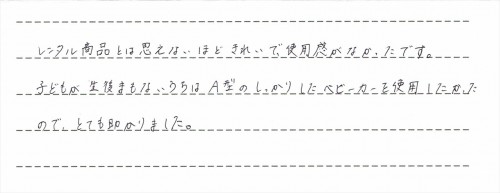 レンタル商品とは思えないほどきれいで使用感がなかったです。
子どもが生後まもないうちはA型のしっかりしたベビーカーを使用したかった
ので、とても助かりました。